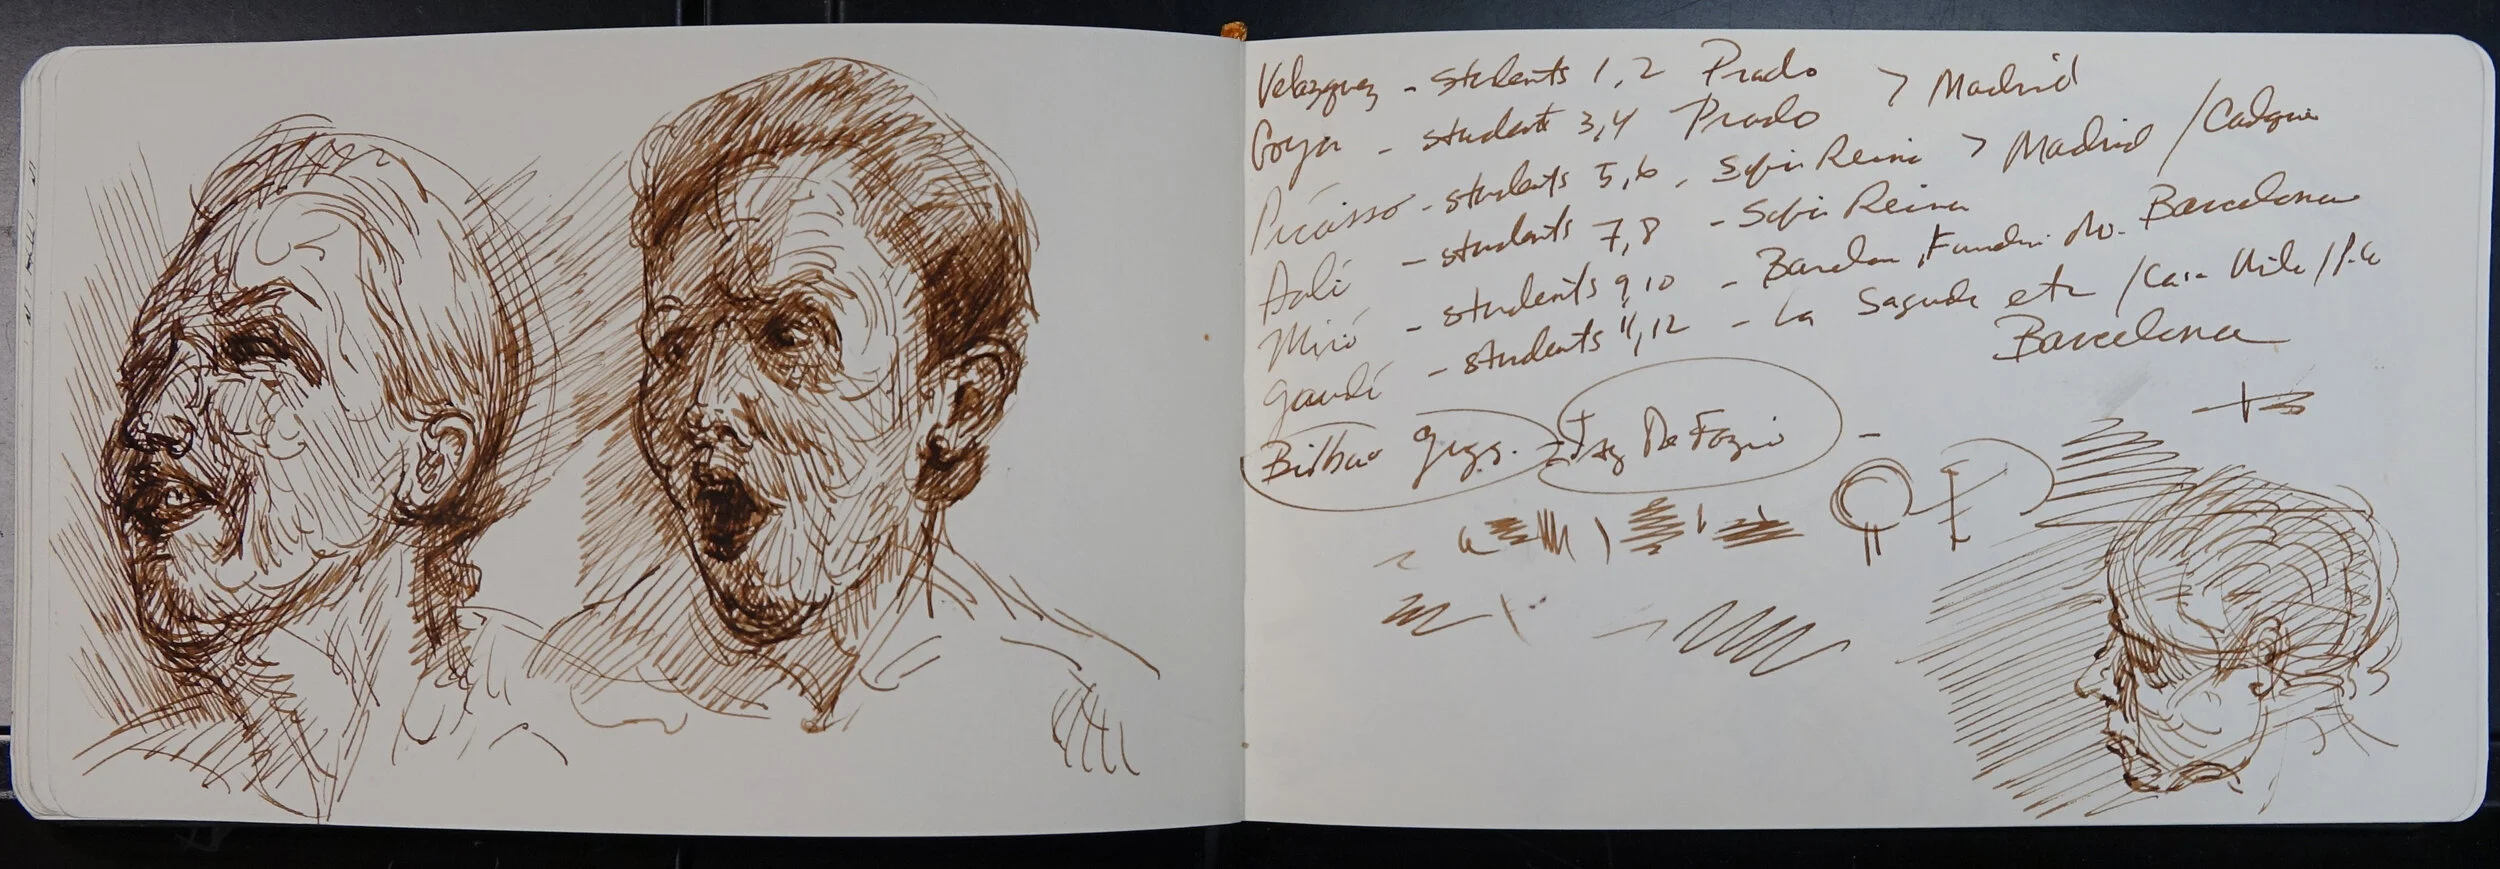 Velazquez - students 1, 2 Prado > Madrid
Goya - students 3, 4 Prado
Picasso - students 5, 6, Sofia Reina > Madrid / Cadque
Dalí - students 7, 8 - Sofia Reina
Miró - students 9, 10 - Barcelon, Fundn. Mo. Barcelona
Gaudí - students 11, 12 - La Sagrada etc / Casa Mila /
Barcelona
Bilbao Gugg. - De Fazio -